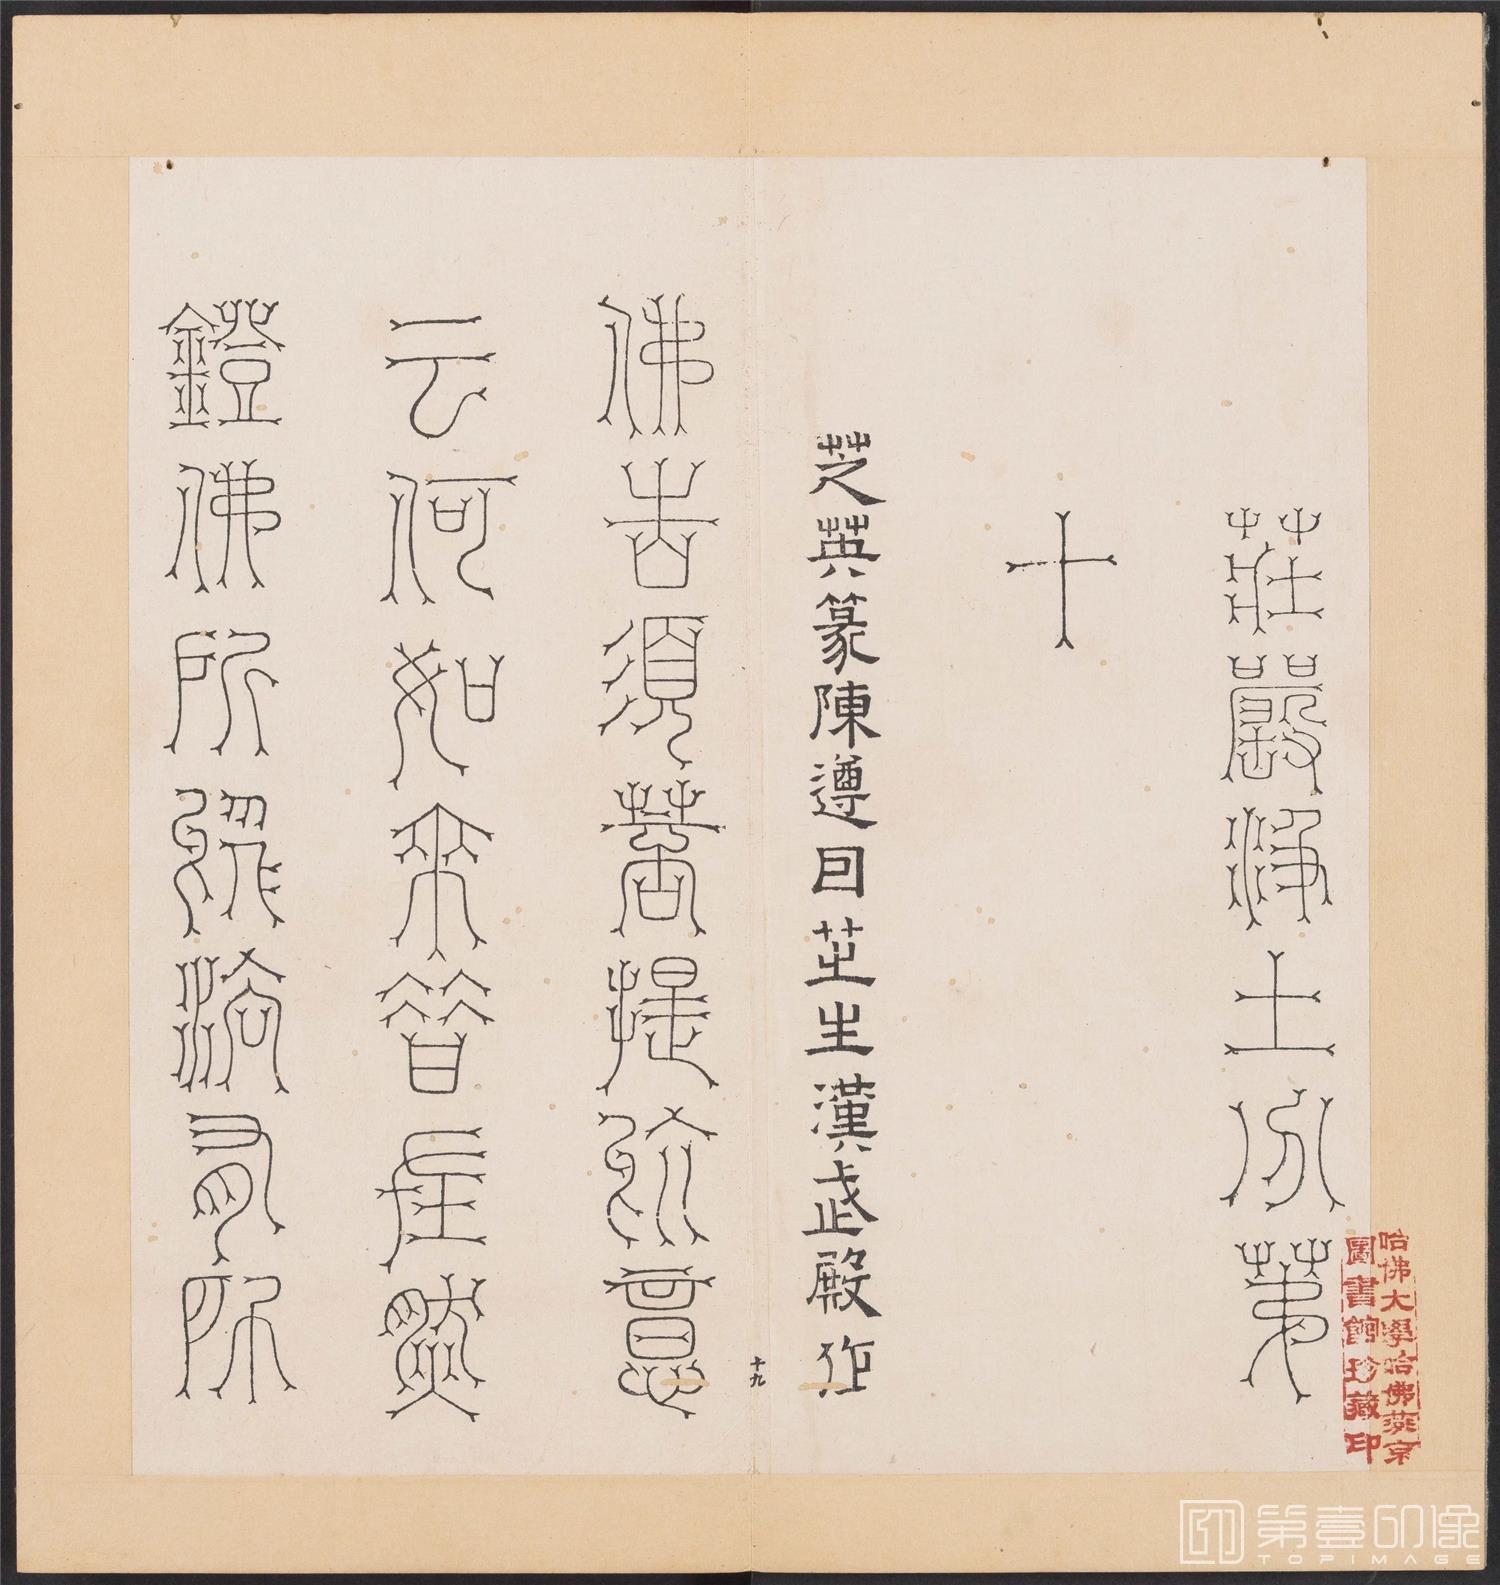 莊嚴淨土分第
十
芝英篆陳遵曰芝生漢武殿作
佛告須菩提於意
云何如來昔在然
鐙佛所於法有所
十九
哈佛大學哈佛燕京
圖書館珍藏印
第壹印像
TOPIMAGE